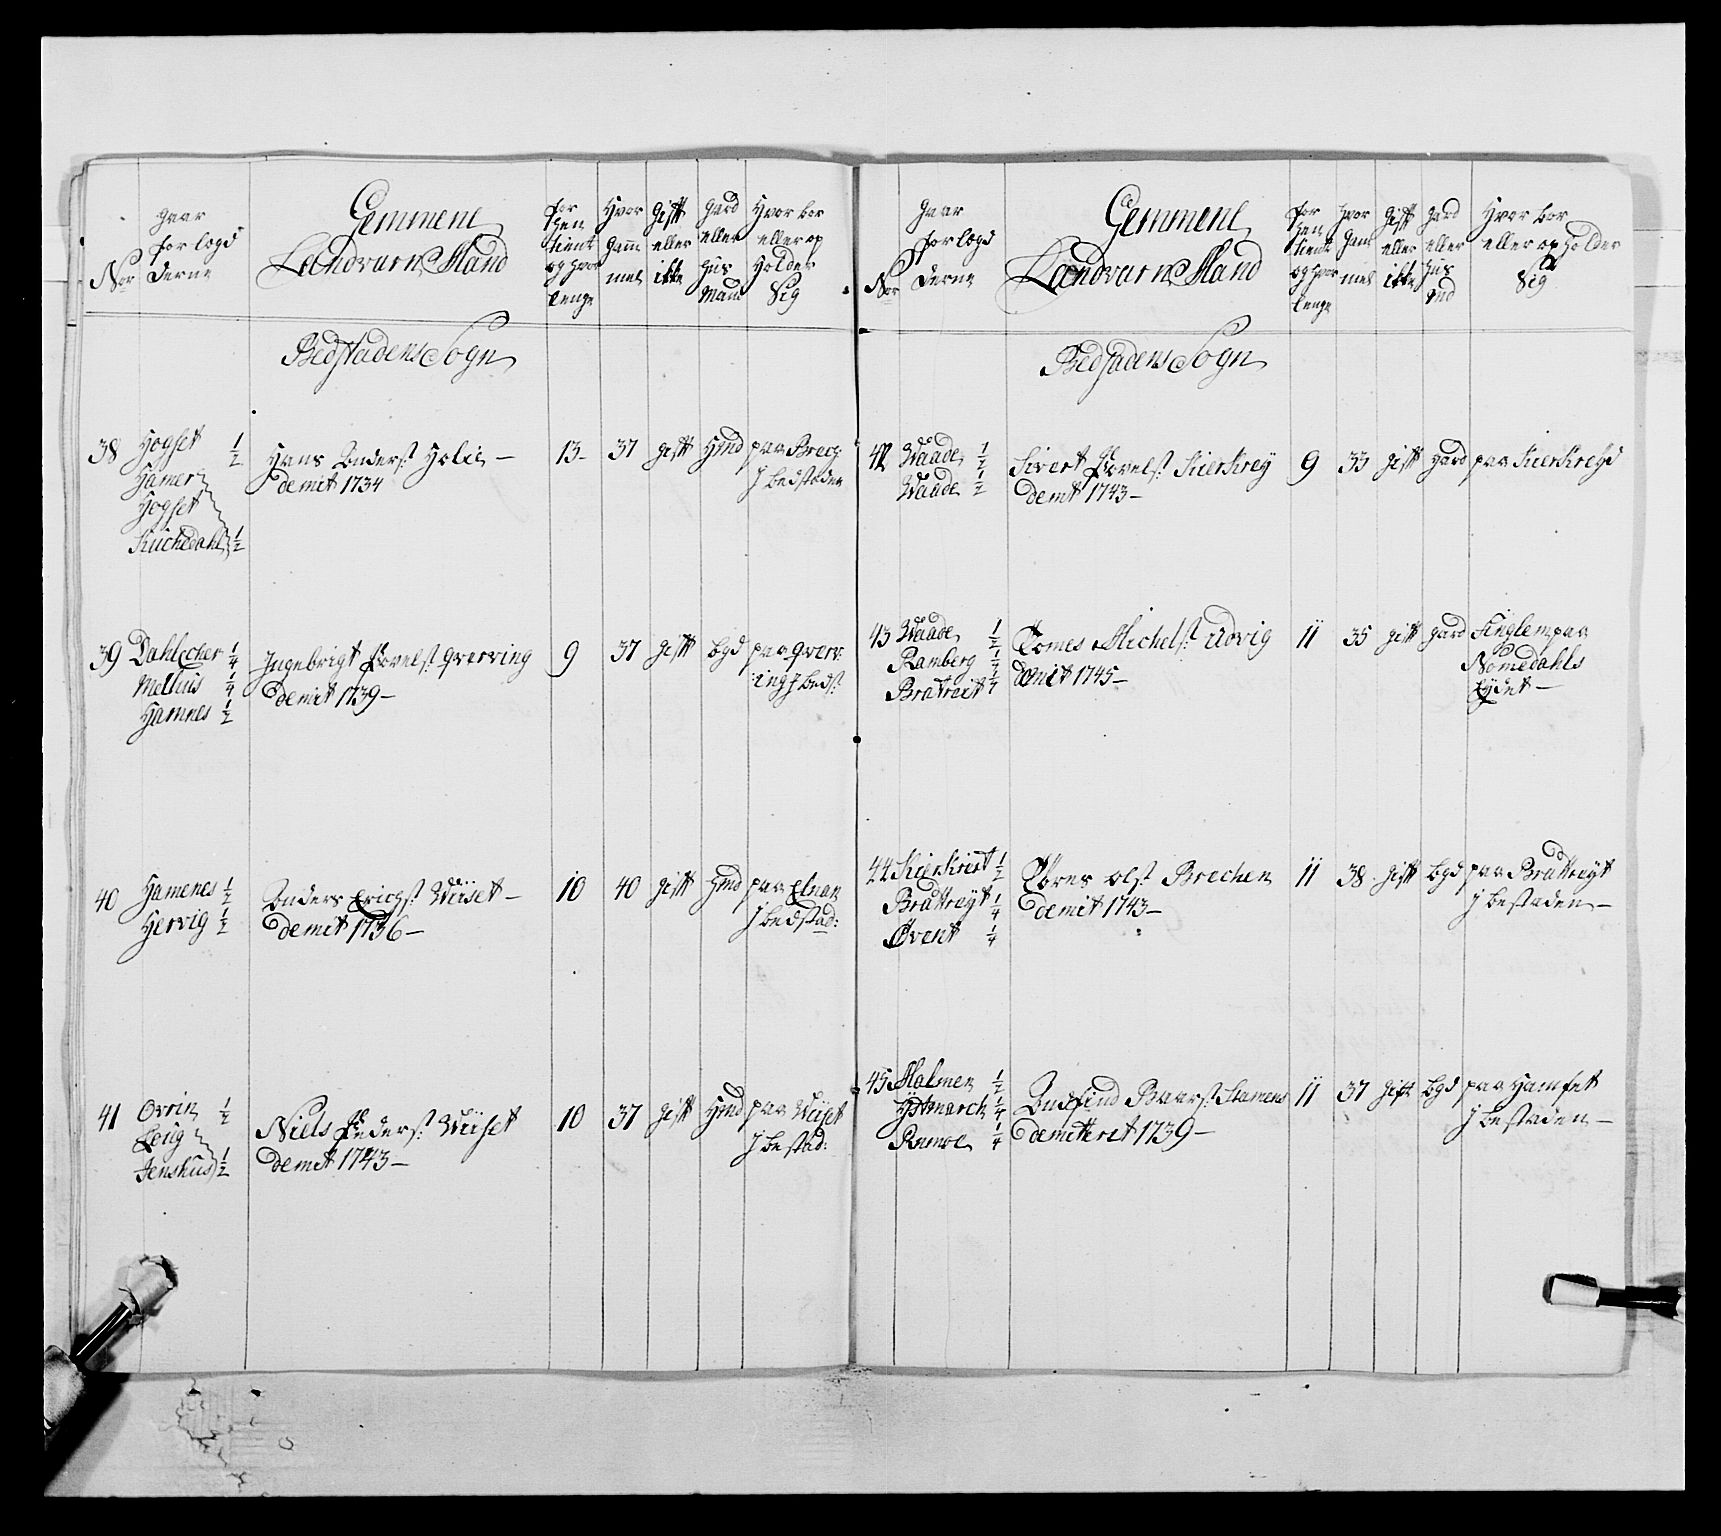 Nor
gaar
forlogd
Derne
Gemmene
Landvarn Mand
for
hen
tient
og hvor
lenge
Hvor
gam
mel
gift
eller
ikke
gard
eller
Hus
Mand
Hvor bor
eller op
Holder
Sig
Bedstadens Sogn
38 Hogset 1/2
Hamer
Hogset
Kirchedahl 1/2
Hans Anders: Holie –
demit 1734
13– 37 gift Hmd paa Brech
J bedstaden
39 Dahlecher 1/4
Melhus 1/4
Hamnes 1/2
Ingebrigt Povels: Qverving
demit 1739 –
9 37 gift bgd paa Qverv:
ing J beds:
40 Hamenes 1/2
Hervig 1/2
Anders Erichs: Wiiset –
demit 1736 –
10 40 gift Hmd paa Elnan
J bedstad:
41 Ovrin 1/2
Leiig
Jenshus 1/2
Niels Peders: Wiiset
demit 1743 –
10 37 gift Hmd paa Wiiset
J bestad:
Nor
gaar
forlogd
Derne
Gemmene
Landvarn Mand
for
hen
tient
og hvor
lenge
Hvor
gam
mel
gift
eller
ikke
gard
eller
Hus
md
Hvor bor
eller op Holder
Sig
Bedstadens Sogn
42 Waade 1/2
Waade 1/2
Sivert Povels: Kierkrey
demt 1743 –
9 33 gift gard paa Kierkreyd
43 Waade 1/2
Ramberg 1/4
Bratreit 1/4
Tomes Michels: Udvig
demit 1745 –
11 35 gift gard Finglem paa
Nomedahls
Eydet –
44 Kierkreit 1/2
Brattreyt 1/4
Øvent 1/4
Tores Ols: Brechen
demit 1743 –
11 38 gift bgd paa Brattreyt
J bestaden –
45 Malmen 1/2
Hstmarck 1/4
Ramoe 1/4
Audfind Baars: Stamnes
demitteret 1739 –
11 37 gift bgd paa Hamset
J bestaden –